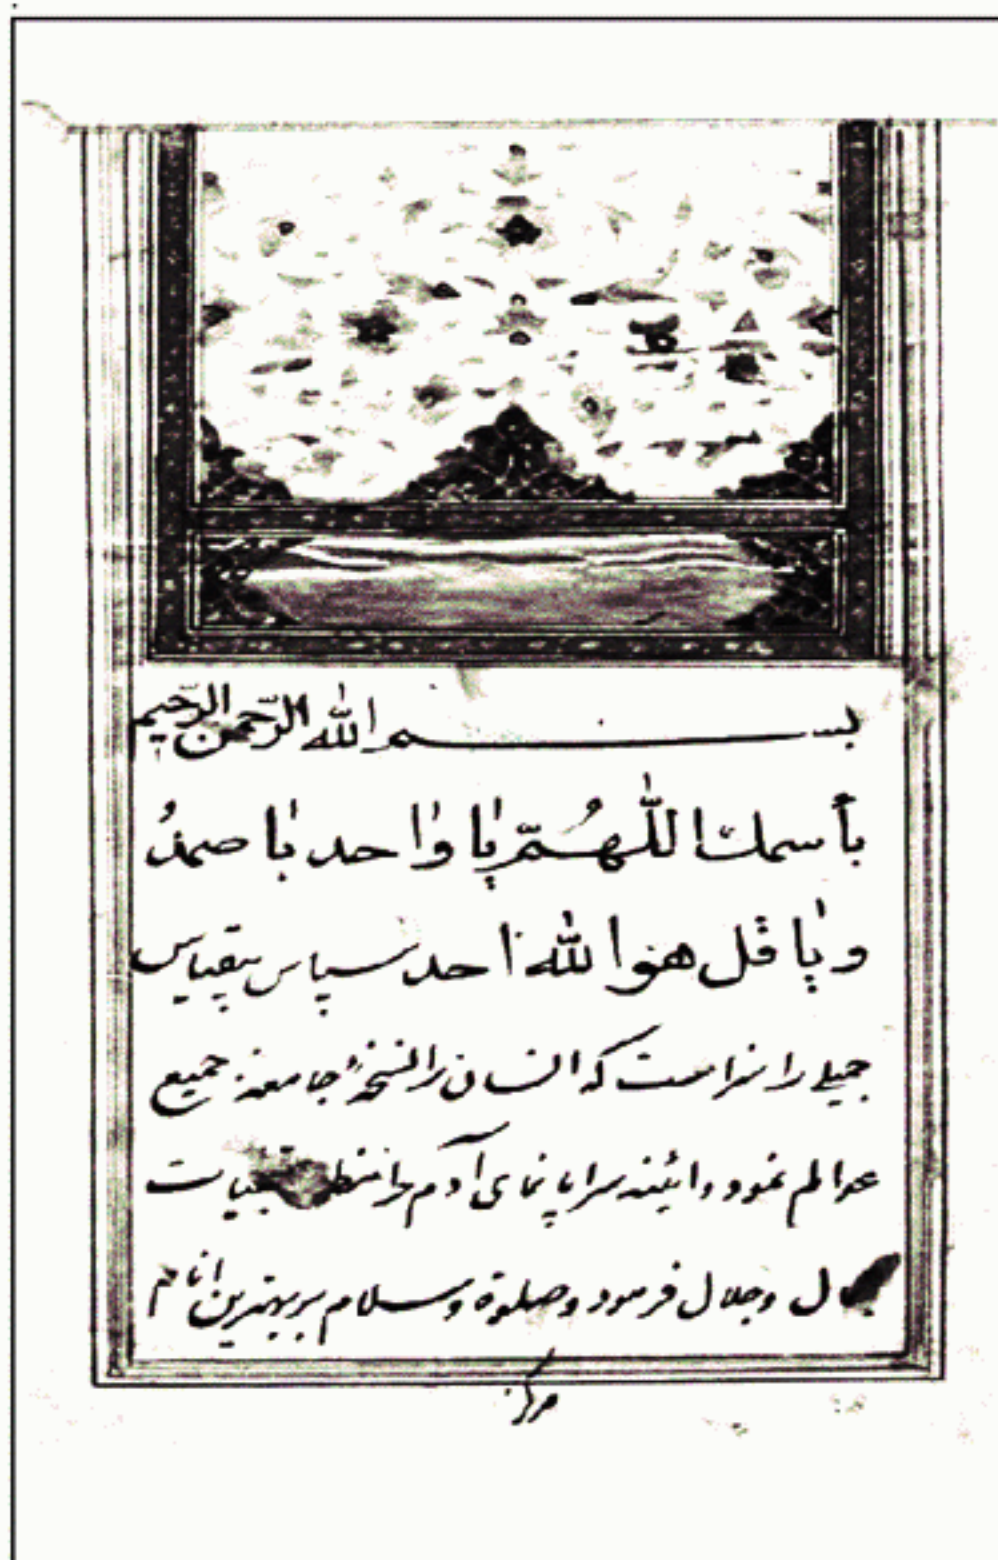 بسم الله الرّحمن الرّحیم
بأسمك اللّهُمّ یا واحد یا صمدُ
و یا قل هو الله احد سپاس بیقیاس
جمیلی را سزاست که انسان را نسخهٔ جامعهٔ جمیع
عوالم نمود و ائینه سراپا نمای آدم را تجلیات
و جلال فرمود و صلوة و سلام بر بهترین انام
مرکز